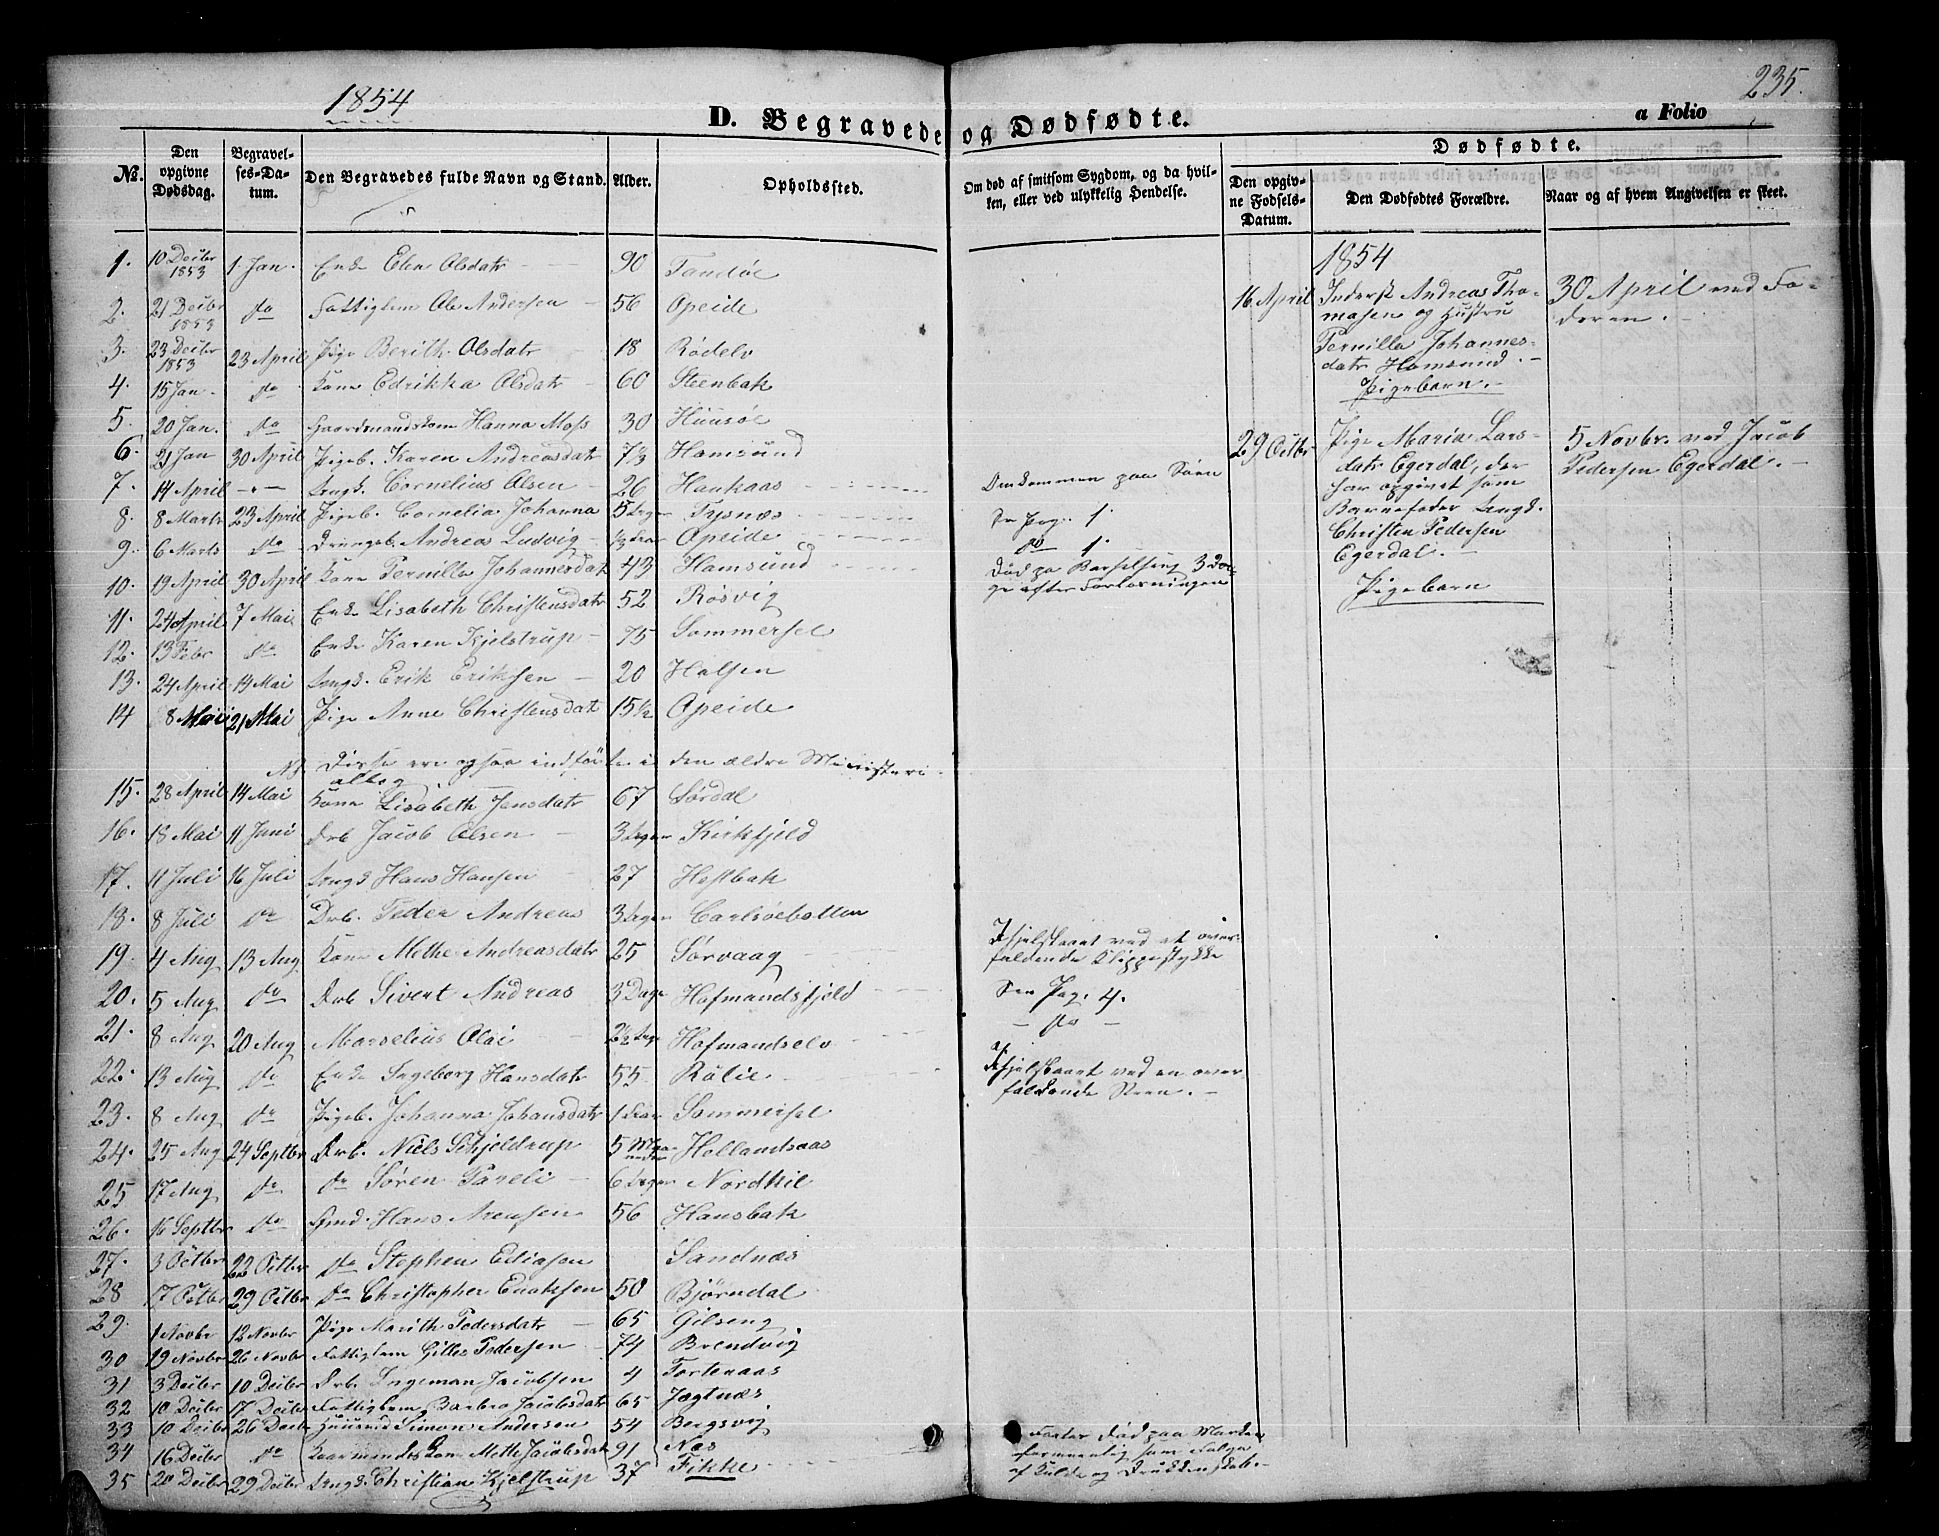 1854
235.
D. Begravede og Dødfødte.
a Folio
No.
Den opgivne Dødsdag.
Begravelses-Datum.
Den Begravedes fulde Navn og Stand.
Alder.
Opholdssted.
Om død af smitsom Sygdom, og da hvilken, eller ved ulykkelig Hendelse.
Dødfødte.
Den opgivne Fødsels-Datum.
Den Dødfødtes Forældre.
Naar og af hvem Angivelsen er skeet.
1. 10 Decbr 1853 1 Jan. Enke Elen Olsdatr 90 Tandøe
2. 21 Decbr 1853 do Fattiglem Ole Andersen 56 Opeide
3. 23 Decbr 1853 23 April Pige Berith Olsdatr 18 Rødelv
4. 15 Jan. do Kone Edrikka Olsdatr 60 Steenbak
5. 20 Jan. do Gaardmandskone Hanna Moss 30 Huusøe
6. 21 Jan 30 April Pigeb. Karen Andreasdatr Hamsund
7. 14 April Ungk. Cornelius Olsen 26
8. 8 Marts 23 April Pigeb. Cornelia Johanna 5 Dage Tysnæs
9. 6 Marts do Drengeb. Andreas Ludvig Opeide
10. 19 April 30 April Kone Pernilla Johannesdatr 43 Hamsund Død paa Barselseng 3 Dage efter Forløsningen
11. 24 April 7 Mai Enke Lisabeth Christensdatr 52 Røsvig
12. 13 Febr do Enke Karen Kjelstrup 75 Sommersel
13. 24 April 14 Mai Ungk. Erik Eriksen 20 Holsen
14 8 Mai 21 Mai Pige Anne Christensdatr 15 1/2 Opeide
NB. Disse ere ogsaa indførte i den ældre Ministeri-
albog
15. 28 April 14 Mai Kone Lisabeth Jensdatr 67 Sørdal
16. 18 Mai 11 Juni Drb Jacob Olsen 3 Dage Kirkfjeld
17. 11 Juli 16 Juli Ungk Hans Hansen 27 Hestbak
18. 8 Juli do Drb. Peder Andreas 3 Dage Carlsøebotten
19. 4 Aug 13 Aug Kone Methe Andreasdatr 25 Sørvaag Ihjelslaaet ved et overfaldende Klippestykke
20. 5 Aug do Drb Sivert Andreas 3 Dage Hofmandsfjeld See Pag. 4.
21. 8 Aug 20 Aug Marselius Olai Hofmandselv – do –
22. 13 Aug do Enke Ingeborg Hansdatr 55 Rølie Ihjelslaaet ved en overfaldende Steen.
23. 8 Aug do Pigeb. Johanna Johansdatr 1 Sommersel
24. 25 Aug 24 Septbr Drb. Niels Schjeldrup 5 Maaneder Hollandsaas
25 17 Aug do do Søren Pareli 6 Dage Nordkil
26. 16 Septbr do Gmd. Hans Arensen 56 Hansbak
27. 3 Octbr 22 Octbr do Stephen Ediasen Sandnæs
28 17 Octbr 29 Octbr do Christopher Enoksen 50 Bjørndal
29. 1 Novbr 12 Novbr Pige Marith Pedersdatr 65 Gilseng
30 19 Novbr 26 Novbr Fattiglem Gilles Pedersen 74 Brendvig
31 3 Decbr 10 Decbr Drb. Ingeman Jacobsen 4 Fortenaas
32 10 Decbr 17 Decbr Fattiglem Barbro Jacobsdatr 65 Jægtnæs
33 10 Decbr 26 Decbr Huusmd Simon Andersen 54 Bogsvig
34 16 Decbr do Kone Methe Jacobsdatr 91 Næs
35 20 Decbr 29 Decbr Ungk. Christian Kjelstrup 37 Fikke
Funden død paa Marken
formeentlig som Følge
af Kulde og Drukkenskab.
1854
16 April Inderst Andreas Tho-
masen og Hustru
Pernilla Johannes-
datr Hamsund.
Pigebarn.
30 April ved Fa-
deren.
29 Octbr Pige Maria Lars-
datr Egerdal, der
har opgivet som
Barnefader Ungk.
Christen Pedersen
Egerdal.
Pigebarn
5 Novbr. ved Jacob
Pedersen Egerdal.